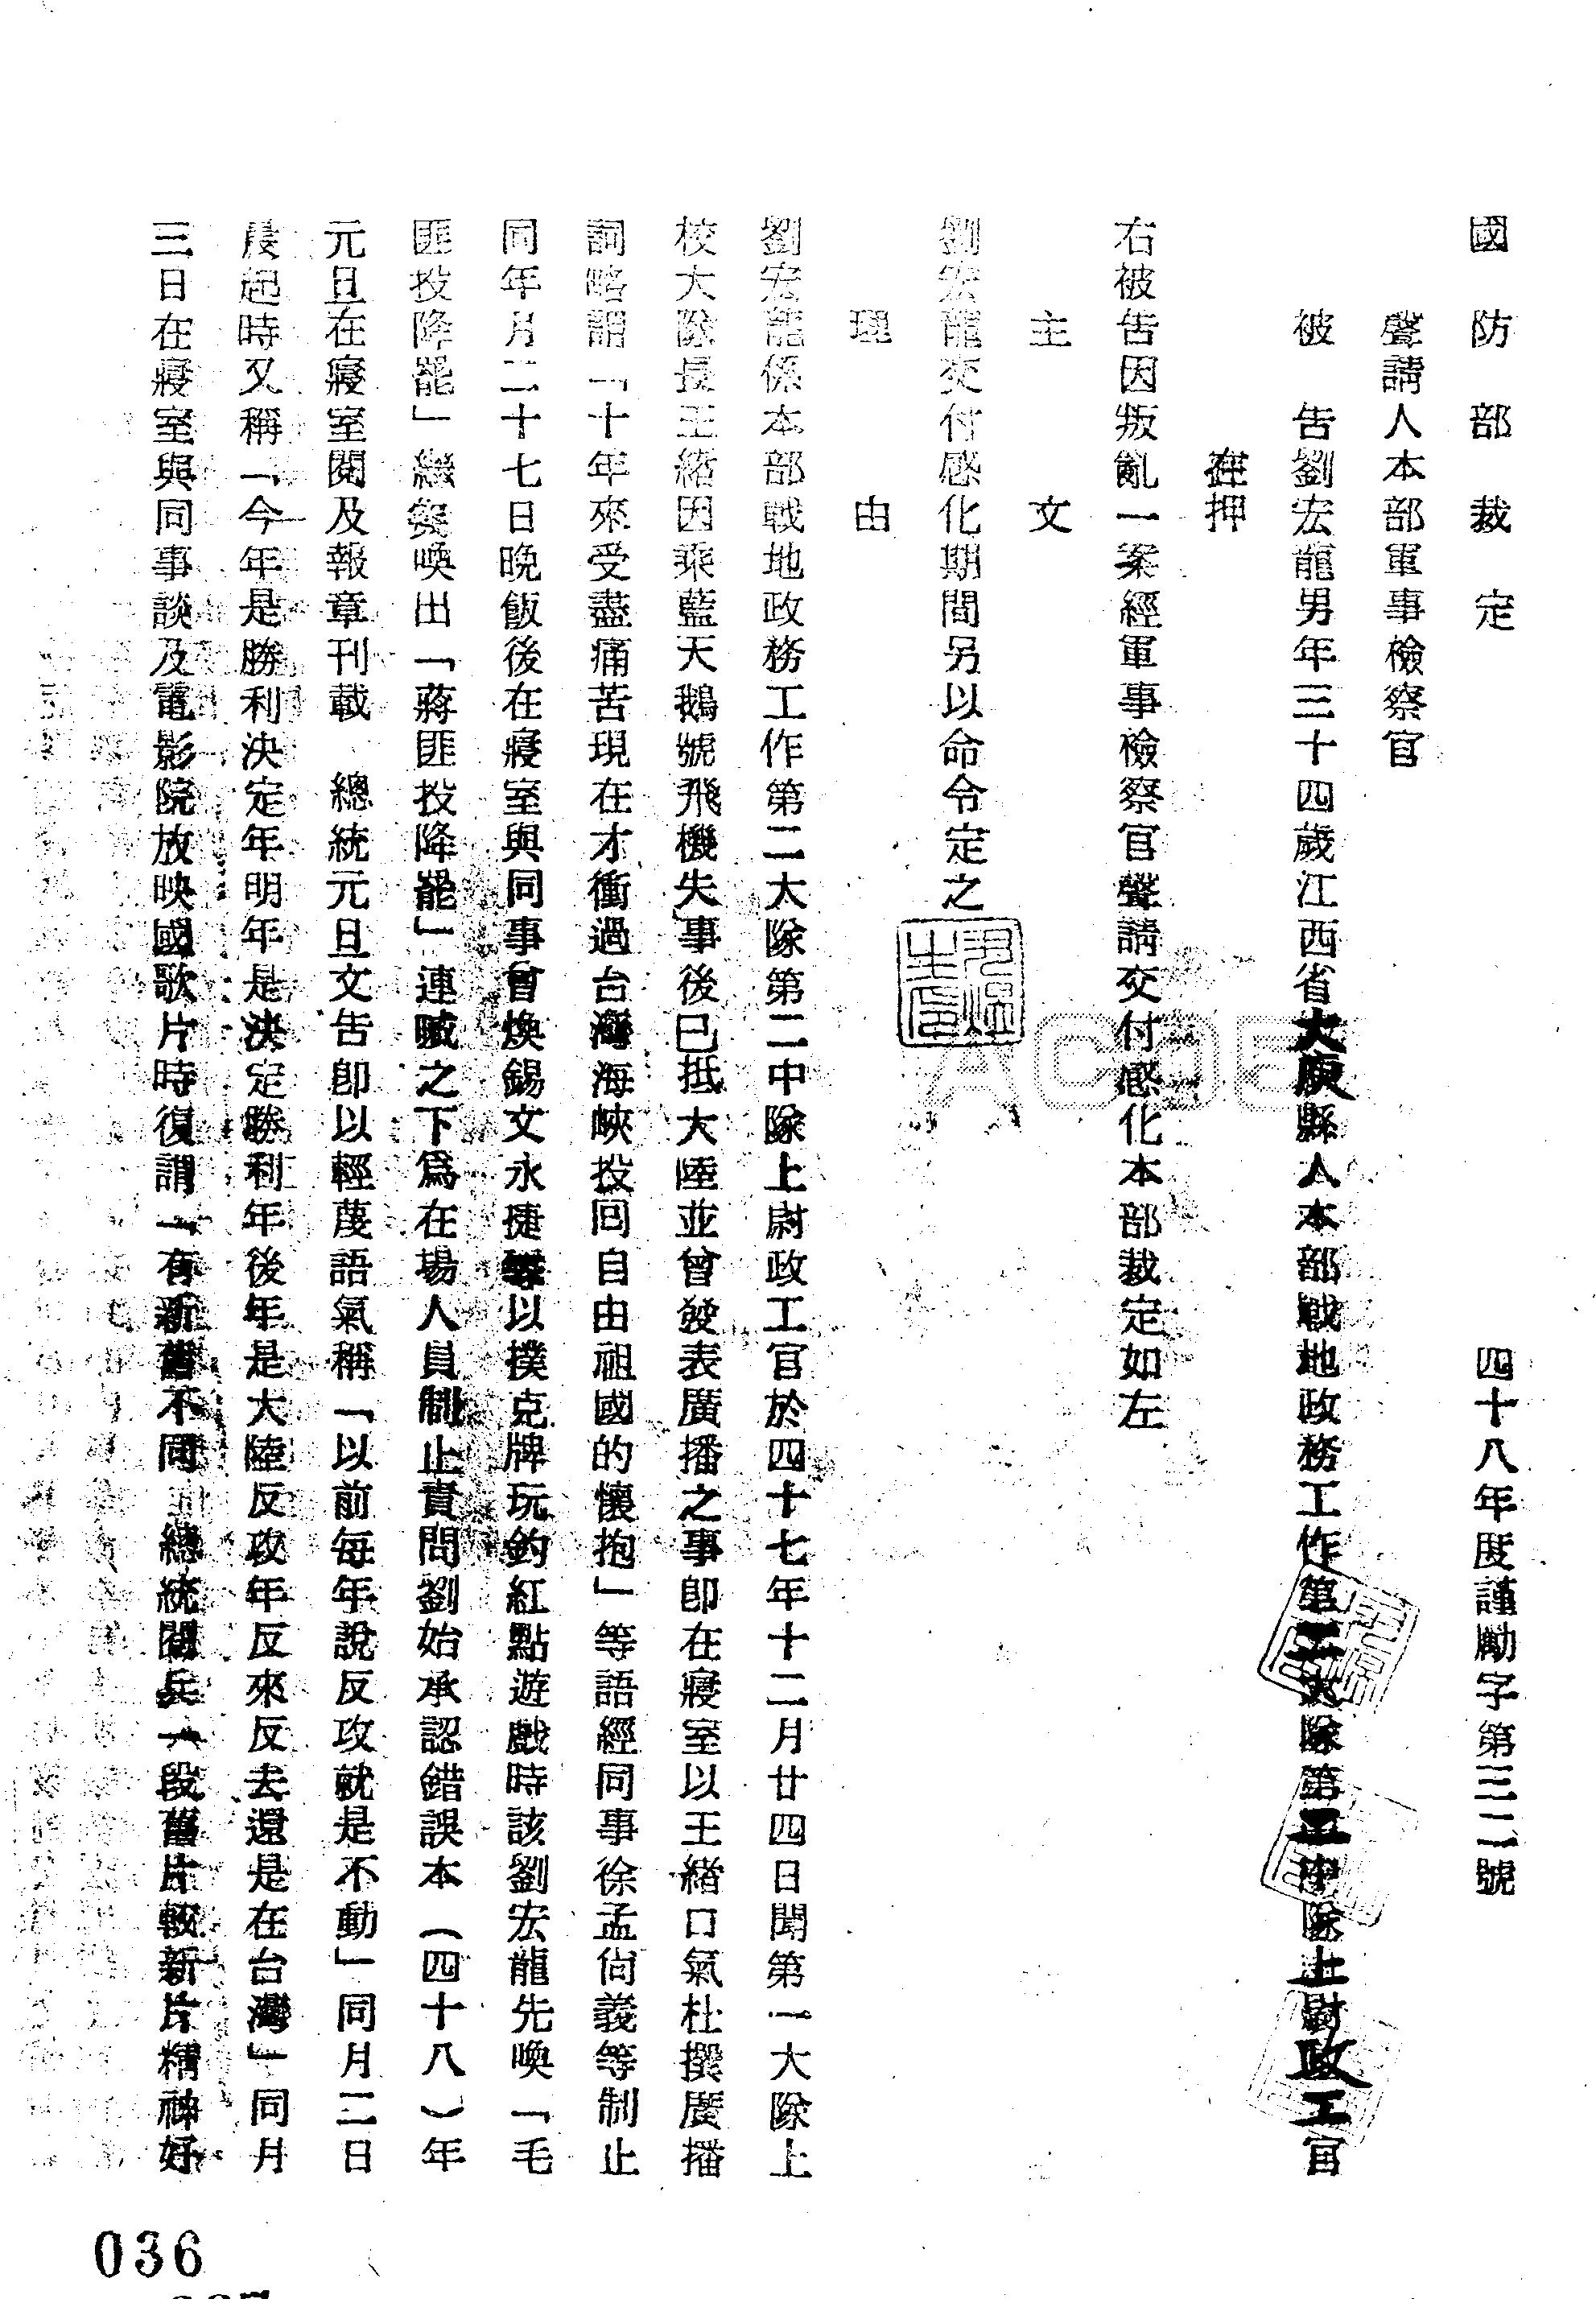 國防部裁定　四十八年度謹勵字第三二號
聲請人本部軍事檢察官
被告劉宏龍男年三十四歲江西省大庾縣人本部戰地政務工作第二大隊第二中隊上尉政工官
在押
右被告因叛亂一案經軍事檢察官聲請交付感化本部裁定如左
主文
劉宏龍交付感化期間另以命令定之
理由
劉宏龍係本部戰地政務工作第二大隊第二中隊上尉政工官於四十七年十二月廿四日聞第一大隊上
校大隊長王緒因乘藍天鵝號飛機失事後已抵大陸並曾發表廣播之事卽在寢室以王緒口氣杜撰廣播
詞略謂「十年來受盡痛苦現在才衝過台灣海峽投回自由祖國的懷抱」等語經同事徐孟尙義等制止
同年月二十七日晚飯後在寢室與同事曾煥錫文永捷等以撲克牌玩釣紅點遊戲時該劉宏龍先喚「毛
匪投降罷」繼突喚出「蔣匪投降罷」連喊之下爲在場人員制止責問劉始承認錯誤本（四十八）年
元旦在寢室閱及報章刊載　總統元旦文告卽以輕蔑語氣稱「以前每年說反攻就是不動」同月二日
晨起時又稱「今年是勝利決定年明年是決定勝利年後年是大陸反攻年反來反去還是在台灣」同月
三日在寢室與同事談及電影院放映國歌片時復謂「有新舊不同　總統閱兵一段舊片較新片精神好
036